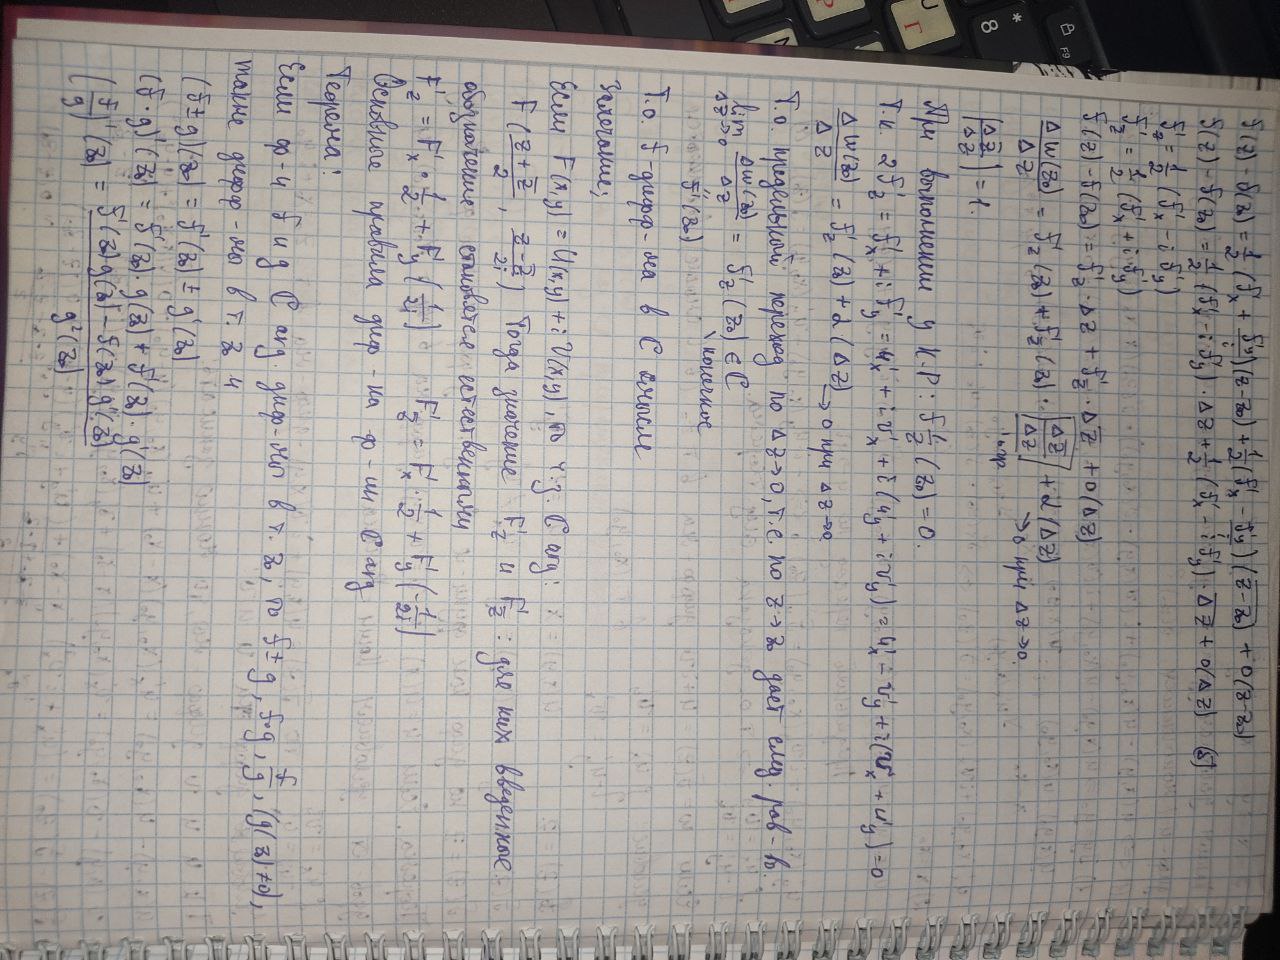 f(z) - f(z₀) = 1/2 (f'ₓ + f'ᵧ/i)(z-z₀) + 1/2 (f'ₓ - f'ᵧ/i)(z̅-z̅₀) + o(z-z₀)
f(z) - f(z₀) = 1/2 (f'ₓ - i f'ᵧ)·Δz + 1/2 (f'ₓ - i f'ᵧ)·Δz̅ + o(Δz) (5)
f'_z = 1/2 (f'ₓ - i f'ᵧ)
f'_z̅ = 1/2 (f'ₓ + i f'ᵧ)
f(z) - f(z₀) = f'_z · Δz + f'_z̅ · Δz̅ + o(Δz)
Δw(z₀)/Δz = f'_z (z₀) + f'_z̅ (z₀) · Δz̅/Δz + α(Δz) → 0 при Δz→0.
|Δz̅/Δz| = 1.
При выполнении у К.Р: f'_z̅ (z₀) = 0.
Т.к 2f'_z̅ = f'ₓ + i f'ᵧ = u'ₓ + i v'ₓ + i (u'ᵧ + i v'ᵧ) = u'ₓ - v'ᵧ + i (v'ₓ + u'ᵧ) = 0
Δw(z₀)/Δz = f'_z (z₀) + α(Δz) → 0 при Δz→0
Т.о. предельный переход по Δz→0, т.е по z→z₀ дает след. рав-во.
lim Δz→0 Δw(z₀)/Δz = f'_z (z₀) ∈ C
f'(z₀) конечное
Т.о. f-дифф-ма в C смысле
Замечание;
Если F(x,y) = U(x,y) + i V(x,y), по ч.g. C alg:
F (z+z̅/2, z-z̅/2i) Тогда значение F'_z и F'_z̅: для них введенное
обозначение становится естественным
F'_z = F'ₓ · 1/2 + F'ᵧ (1/2i) F'_z̅ = F'ₓ · 1/2 + F'ᵧ (-1/2i)
Основное правила дифф-ия ф-ии C alg
Теорема:
Если ф-и f и g C alg. дифф-мы в т. z₀, то f±g, f·g, f/g, (g(z₀)≠0),
также дифф-мо в т. z₀ и
(f±g)'(z₀) = f'(z₀) ± g'(z₀)
(f·g)'(z₀) = f'(z₀) g(z₀) + f(z₀)·g'(z₀)
(f/g)'(z₀) = f'(z₀)g(z₀) - f(z₀)g'(z₀) / g²(z₀)